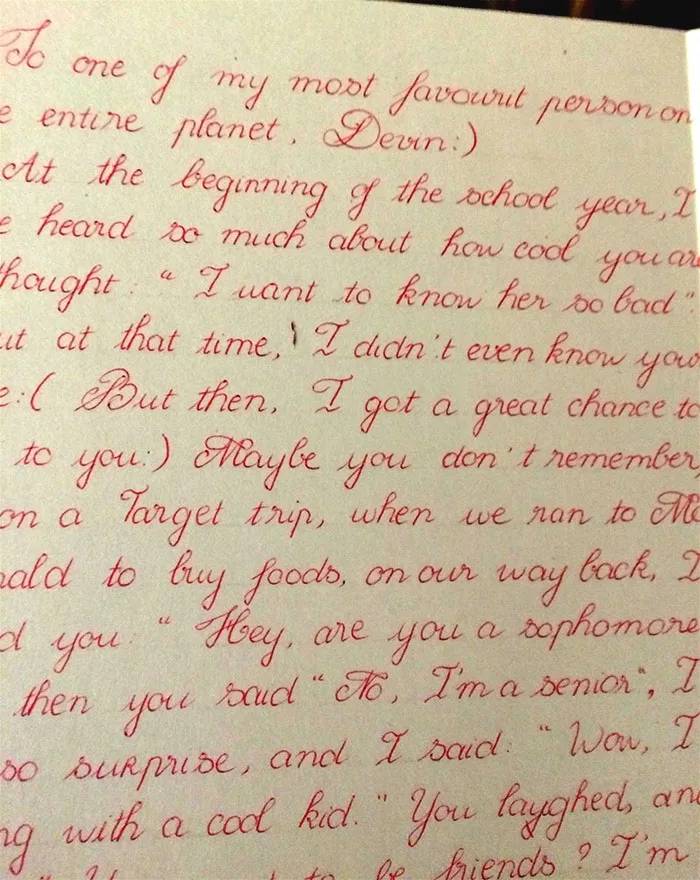 To one of my most favourit person on
e entire planet. Devin:)
At the beginning of the school year, I
e heard so much about how cool you are
hought: " I want to know her so bad".
ut at that time, I didn't even know your
e:( But then, I got a great chance to
to you:) Maybe you don't remember,
on a Target trip, when we ran to Mc
nald to buy foods, on our way back, I
d you: " Hey, are you a sophomore
then you said " No, I'm a senior", I
so surprise, and I said: " Wow, I
ng with a cool kid." You layghed, and
to be friends? I'm